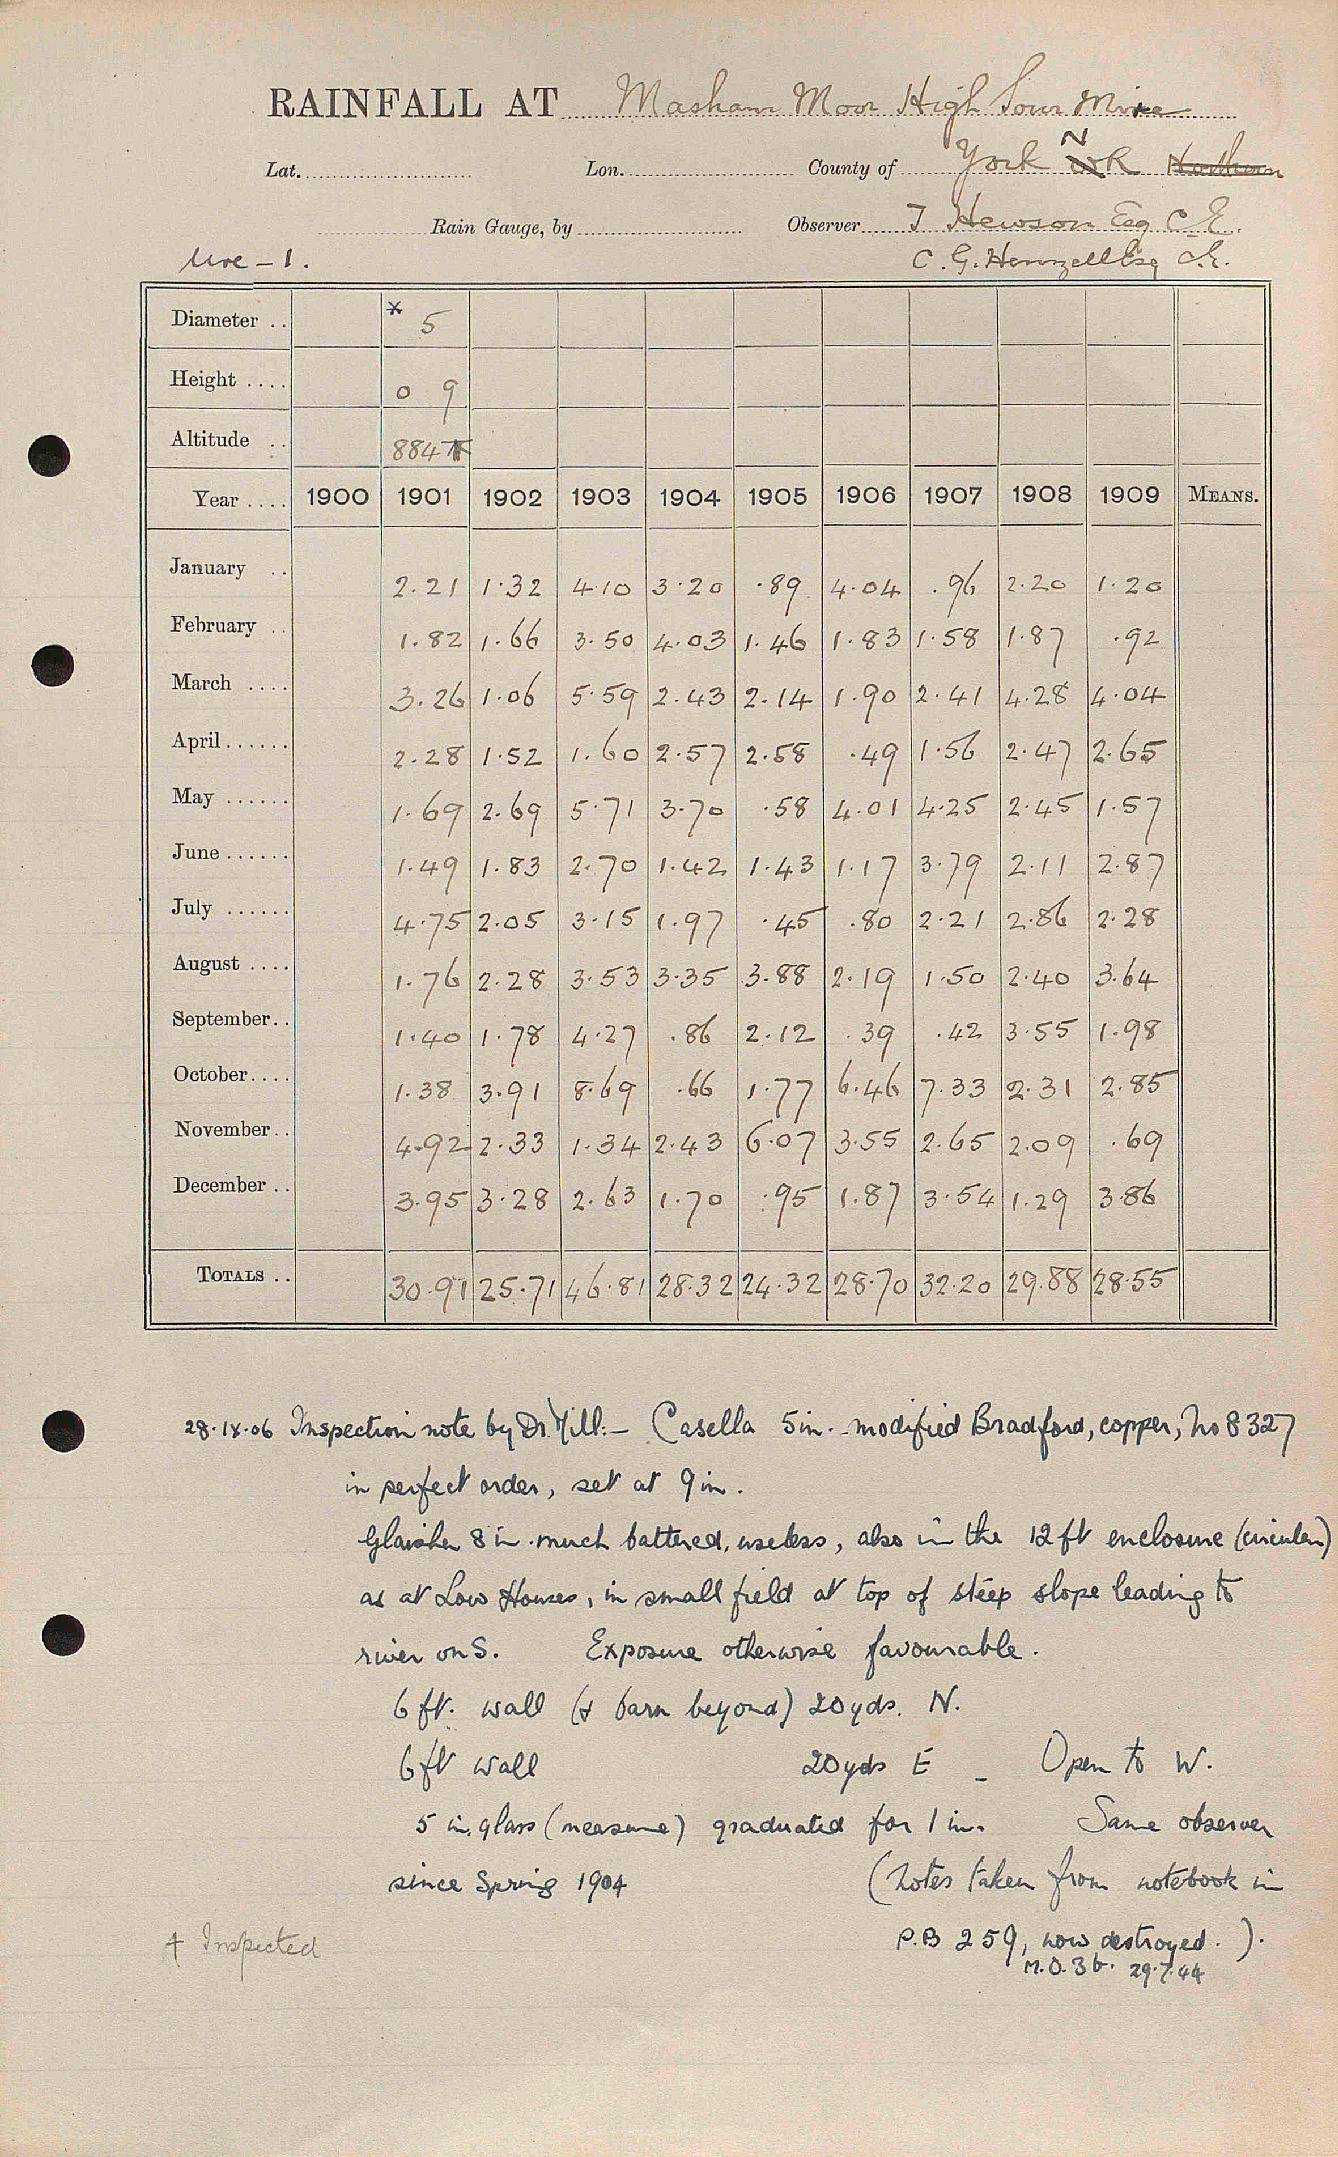 RAINFALL AT Masham Moor High Sour Mire
Lat. Lon. County of York N R
Rain Gauge, by Observer T Hewson Esq C.E.
Ure - 1. C. G. Henzell Esq C.E.
Diameter .. * 5
Height .... 0 9
Altitude .. 884
Year .... 1900 1901 1902 1903 1904 1905 1906 1907 1908 1909 MEANS.
January .. 2.21 1.32 4.10 3.20 .89 4.04 .96 2.20 1.20
February .. 1.82 1.66 3.50 4.03 1.46 1.83 1.58 1.87 .92
March .... 3.26 1.06 5.59 2.43 2.14 1.90 2.41 4.28 4.04
April...... 2.28 1.52 1.60 2.57 2.58 .49 1.56 2.47 2.65
May ...... 1.69 2.69 5.71 3.70 .58 4.01 4.25 2.45 1.57
June...... 1.49 1.83 2.70 1.42 1.43 1.17 3.79 2.11 2.87
July ...... 4.75 2.05 3.15 1.97 .45 .80 2.21 2.86 2.28
August .... 1.76 2.28 3.53 3.35 3.88 2.19 1.50 2.40 3.64
September.. 1.40 1.78 4.27 .86 2.12 .39 .42 3.55 1.98
October.... 1.38 3.91 8.69 .66 1.77 6.46 7.33 2.31 2.85
November.. 4.92 2.33 1.34 2.43 6.07 3.55 2.65 2.09 .69
December .. 3.95 3.28 2.63 1.70 .95 1.87 3.54 1.29 3.86
TOTALS .. 30.91 25.71 46.81 28.32 24.32 28.70 32.20 29.88 28.55
28.IX.06 Inspection note by Dr. Mill:- Casella 5 in. modified Bradford, copper, No 8327
in perfect order, set at 9 in.
Glaisher 8 in much battered, useless, also in the 12 ft enclosure (circular)
as at Low Houses, in small field at top of steep slope leading to
river on S. Exposure otherwise favourable.
6 ft. wall (& barn beyond) 20 yds. N.
6 ft wall 20 yds E - Open to W.
5 in. glass (measure) graduated for 1 in. Same observer
since Spring 1904 (notes taken from notebook in
P.B 259, now destroyed.).
M.O.3b. 29.7.44
† Inspected